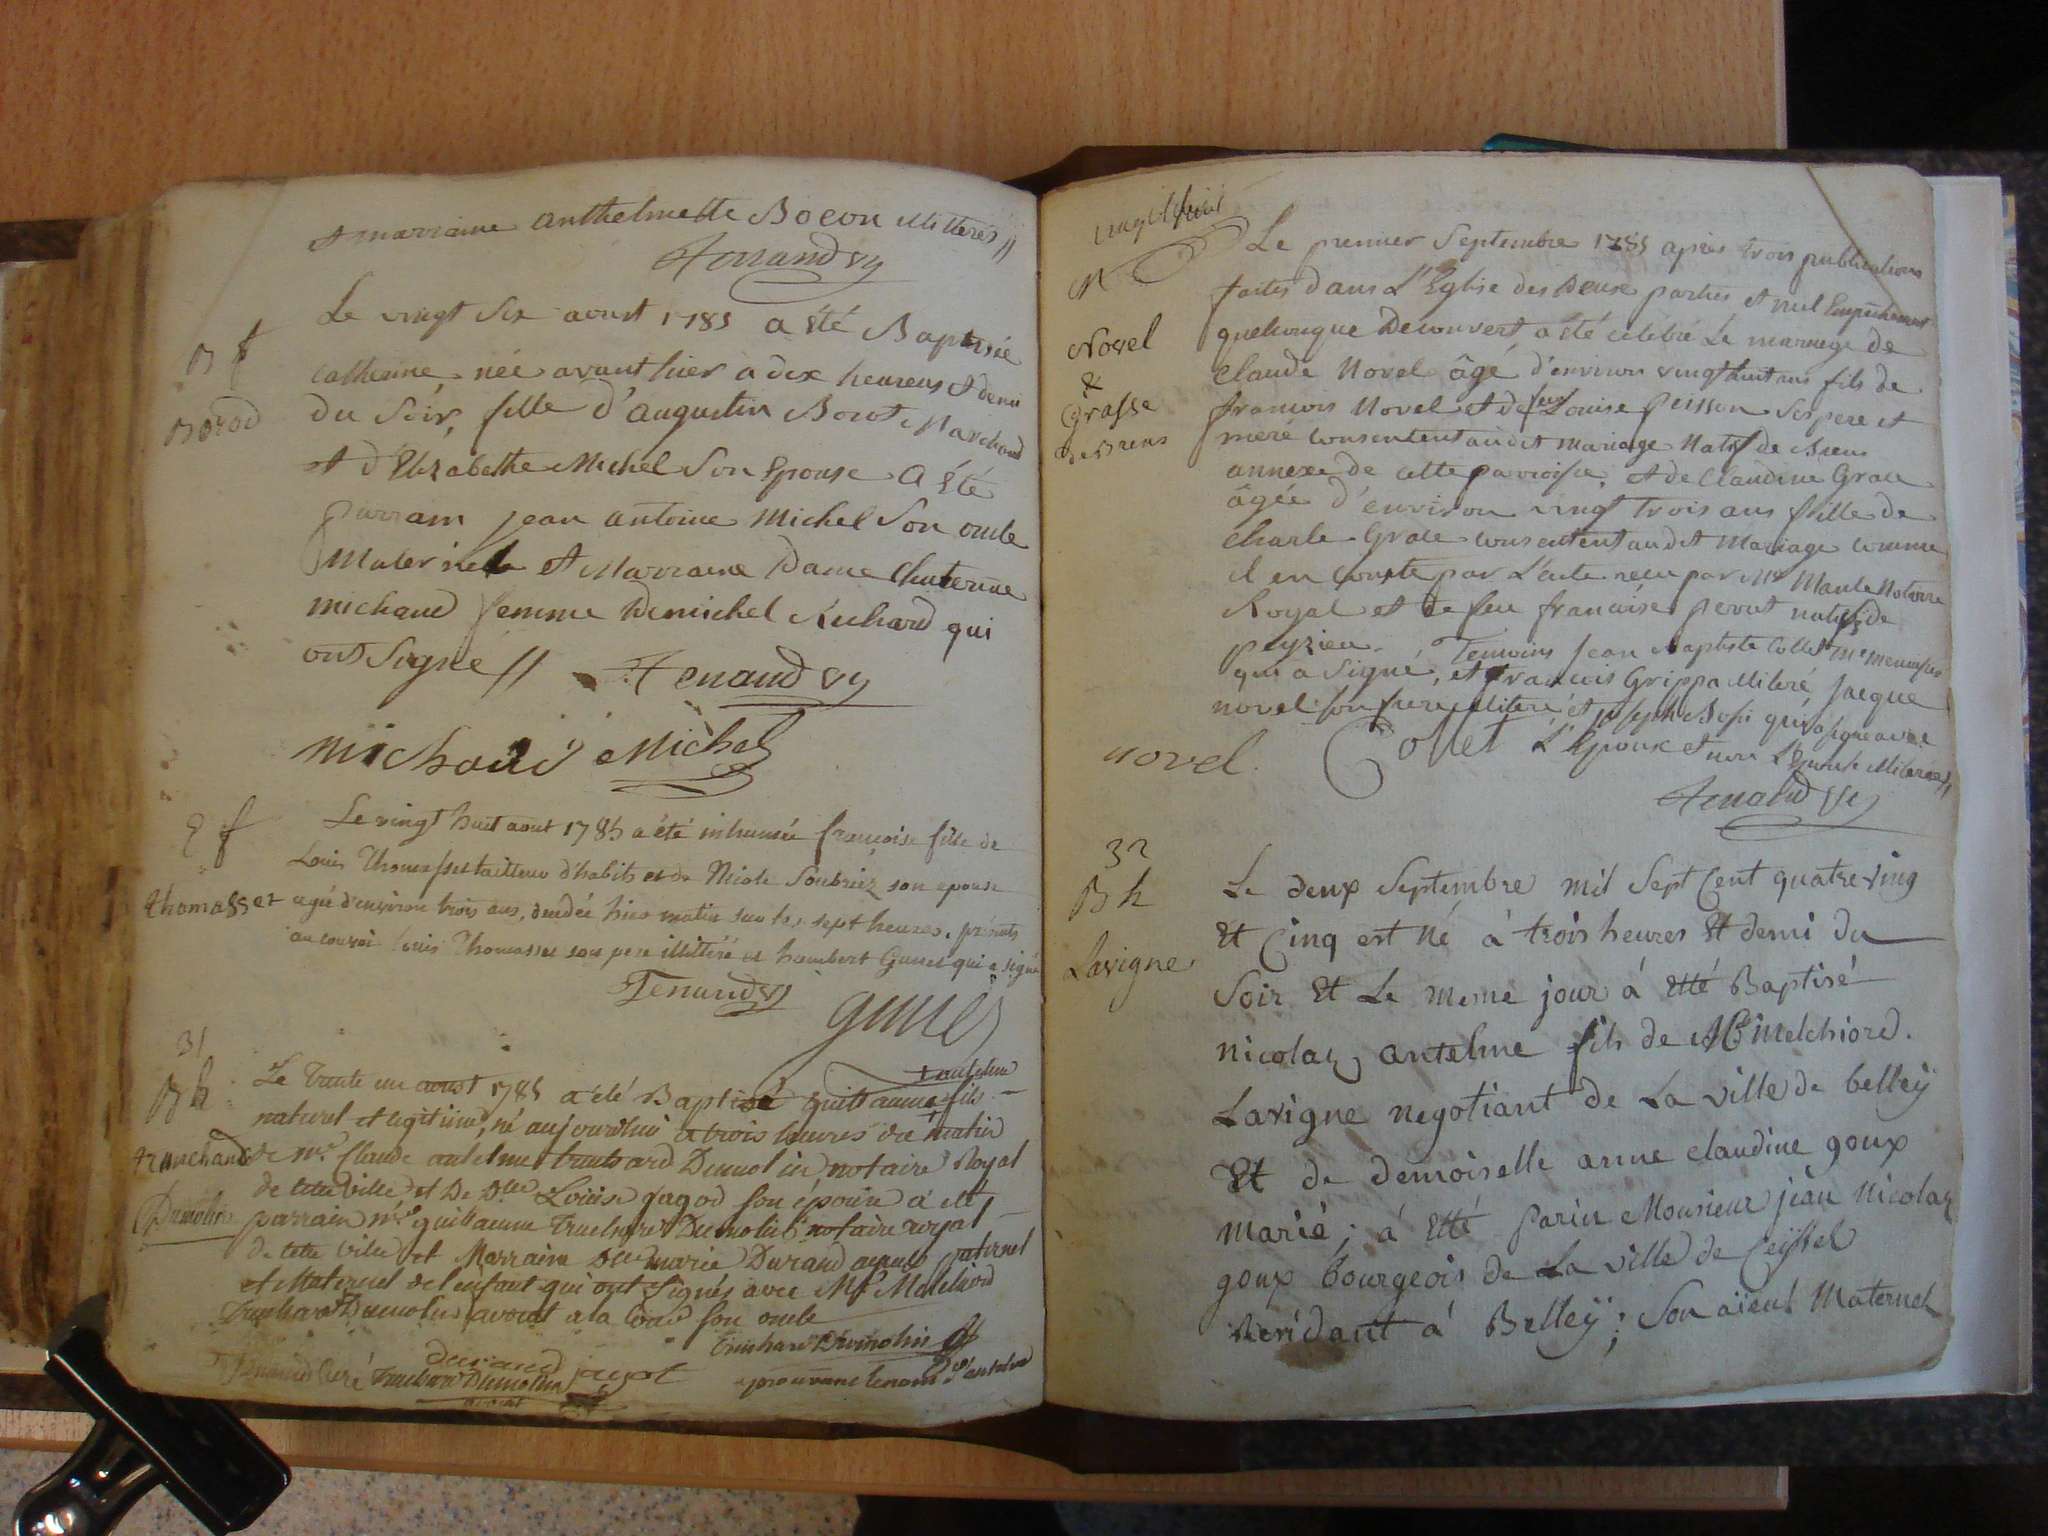 et marraine anthelmette Bocon illitterés //
Le vingt Six aoust 1785 a été Baptisée
B f
Catherine née avant hier à dix heures et demi
Borod
du Soir, fille d'augustin Borot Marchand
et d'Elizabethe Michel Son Epouse a été
parrain jean antoine Michel Son oncle
Maternele et Marraine Dame Chaterine
michaud femme de michel Richard qui
ont Signé //
michaud Michel
E f
Le vingt huit aout 1785 a été inhumée françoise fille de
Louis Thomasset tailleur d'habits et de Nicole Soubriez son epouse
thomasset
agée d'environ trois ans, decedée hier matin sur les sept heures, présents
au convoi Louis Thomasset son pere illittéré et humbert Gunet qui a signé
31
B h
Le Trente un aoust 1785 a été Baptisé guillaume anthelme fils
naturel et legitime, né aujourdhui a trois heures du matin
de mr. Claude antelme Dumolin notaire Royal
de cette ville et De Dlle Loüise jagod son épouse a été
Dumolin
parrain mre guillaume Dumolin notaire royal
de cette ville et Marraine Dlle marie Durand ayeux paternel
et Maternel de l'enfant qui ont Signés avec Mr Melchiord
Dumolin avocat a la Cour son oncle
durand
jagot
avocat
vingt huit
M
Le premier Septembre 1785 après trois publications
faites dans L'Eglise des Deux parties et nul Empêchement
Novel
quelconque Decouvert, a été célébré Le mariage de
&
Claude Novel âgé d'environ vingt huit ans fils de
Grasse
francois Novel et de feue Louise peisson Ses pere et
de Brens
mere consentent audit Mariage Natif de Brens
annexe de cette parroisse, et de Claudine Grace
âgée d'environ vingt trois ans fille de
Charle Grace consentent audit Mariage comme
il en conste par L'acte reçu par Me Notaire
Royal et de feu francoise perout natifs de
peyzieu. Temoins Jean Baptiste Collet Me Menuisier
qui a Signé, et francois Grippa illiteré, Jacque
novel son frere illiteré et joseph qui a signé avec
L'Epoux et non L'Epouse illiterée //
novel. Collet
32
B h
Le deux Septembre mil Sept Cent quatre ving
Et Cinq est Né à trois heures Et demi du
Lavigne
Soir Et Le meme jour á Etté Baptisé
nicolaz antelme fils de Mr melchiord.
Lavigne negotiant de La ville de belleÿ
Et de demoiselle anne claudine goux
marié; á Etté parin Monsieur jean Nicolaz
goux bourgeois de La ville de Ceÿssel
Residant á Belleÿ; Son aïeul Maternel